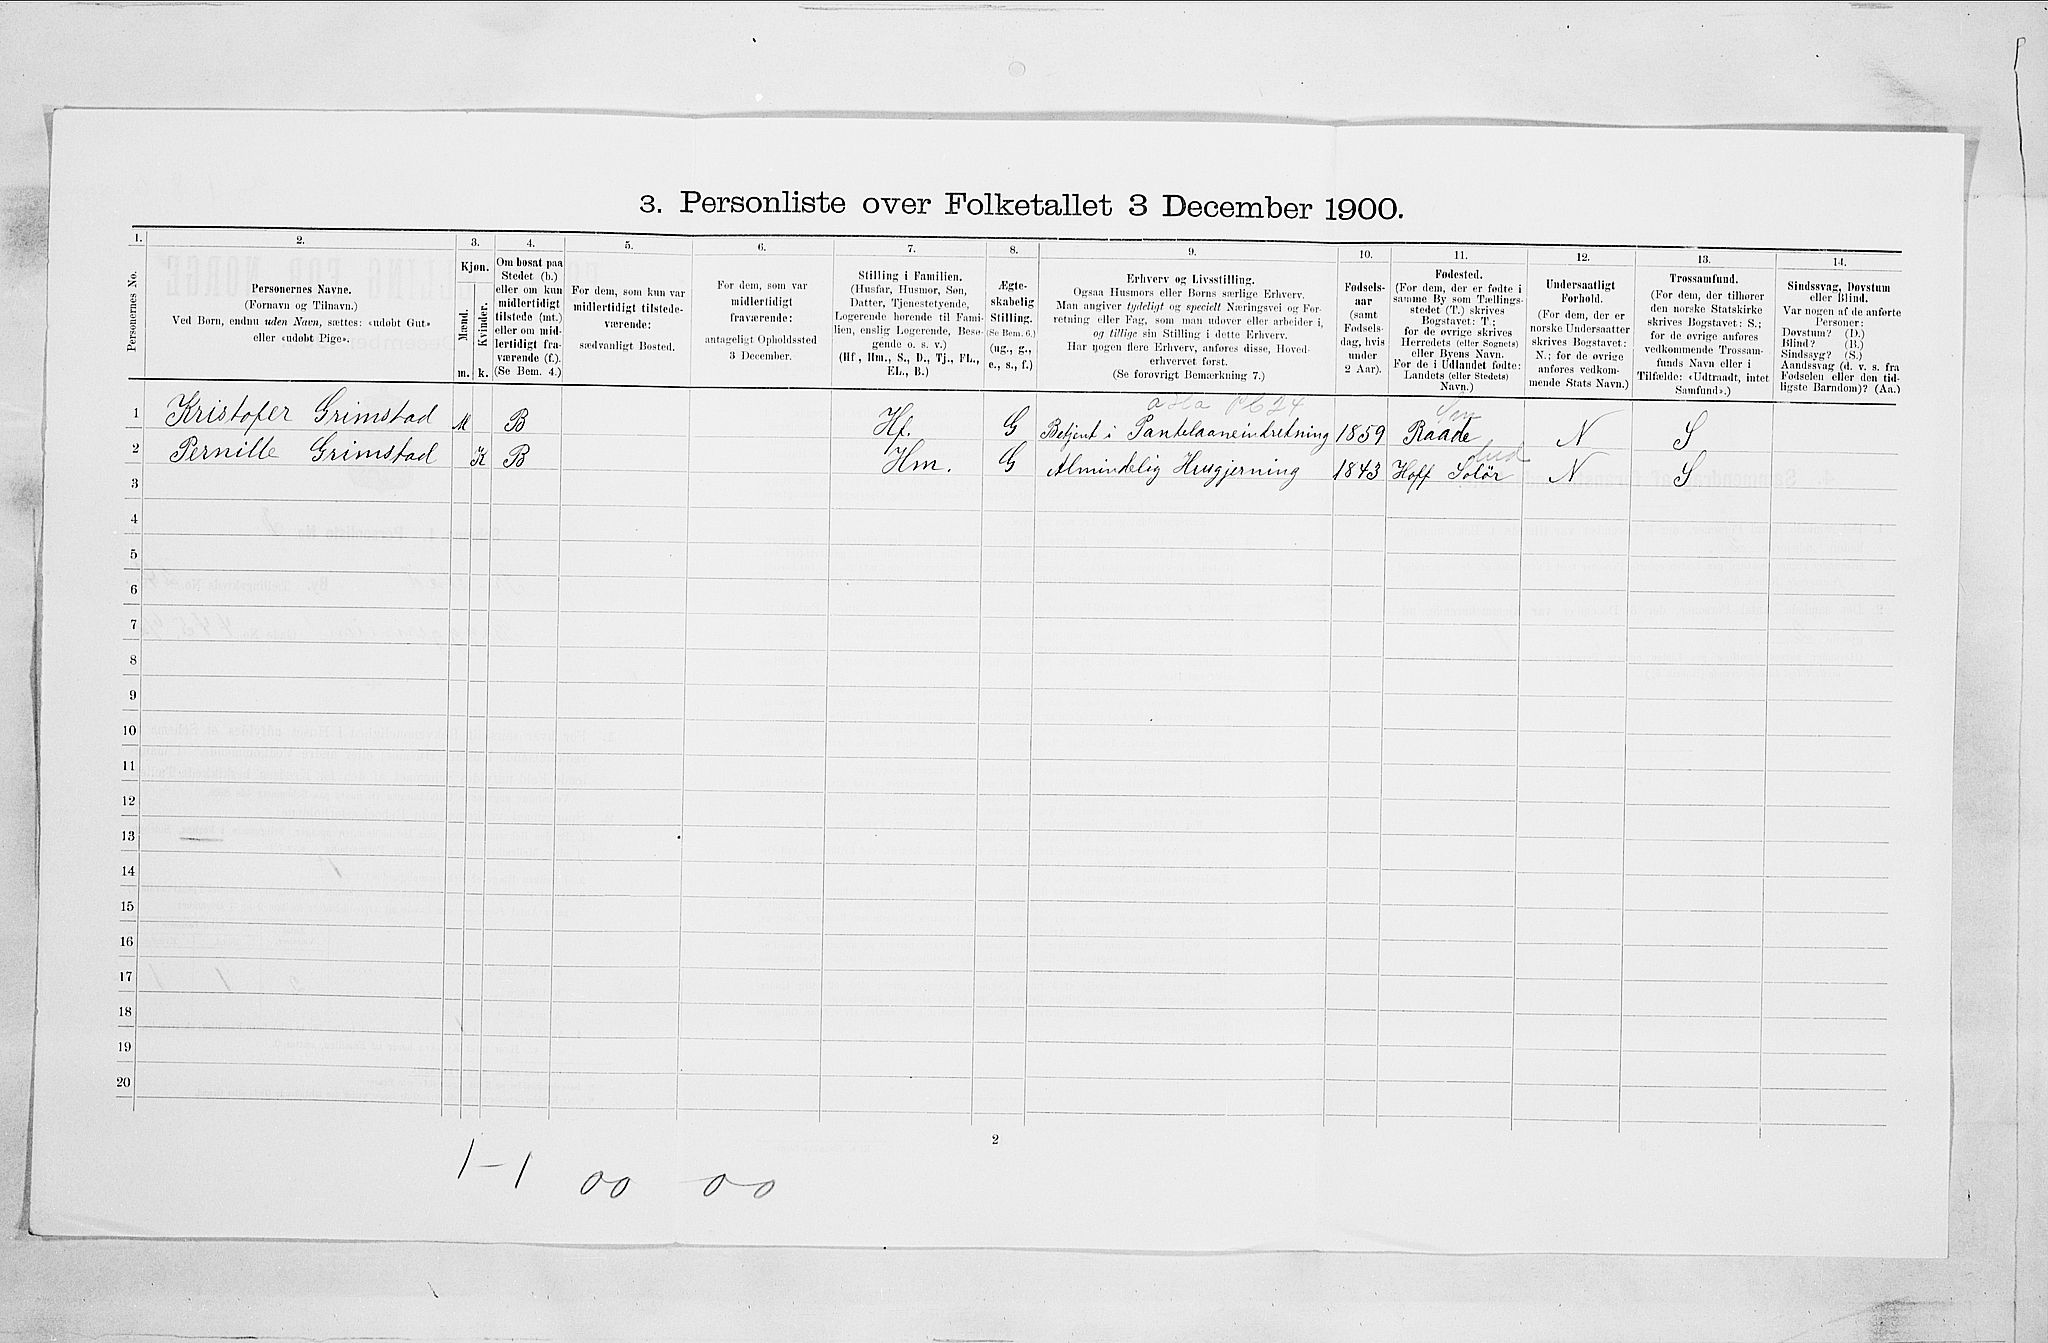 3. Personliste over Folketallet 3 December 1900.
1. 2. 3. 4. 5. 6. 7. 8. 9. 10. 11. 12. 13. 14.
Personernes No.
Personernes Navne.
(Fornavn og Tilnavn.)
Ved Børn, endnu uden Navn, sættes: «udøbt Gut»
eller «udøbt Pige».
Kjøn.
Mænd.
Kvinder.
m. k.
Om bosat paa
Stedet (b.)
eller om kun
midlertidigt
tilstede (mt.)
eller om mid-
lertidigt fra-
værende (f.).
(Se Bem. 4.)
For dem, som kun var
midlertidigt tilstede-
værende:
sædvanligt Bosted.
For dem, som var
midlertidigt
fraværende:
antageligt Opholdssted
3 December.
Stilling i Familien.
(Husfar, Husmor, Søn,
Datter, Tjenestetyende,
Logerende hørende til Fami-
lien, enslig Logerende, Besø-
gende o. s. v.)
(Hf, Hm., S., D., Tj., FL.,
EL., B.)
Ægte-
skabelig
Stilling.
(Se Bem. 6.)
(ug., g.,
e., s., f.)
Erhverv og Livsstilling.
Ogsaa Husmors eller Børns særlige Erhverv.
Man angiver tydeligt og specielt Næringsvei og For-
retning eller Fag, som man udøver eller arbeider i,
og tillige sin Stilling i dette Erhverv.
Har nogen flere Erhverv, anføres disse, Hoved-
erhvervet først.
(Se forøvrigt Bemærkning 7.)
Fødsels-
aar
(samt
Fødsels-
dag, hvis
under
2 Aar).
Fødested.
(For dem, der er fødte i
samme By som Tællings-
stedet (T.) skrives
Bogstavet: T;
for de øvrige skrives
Herredets (eller Sognets)
eller Byens Navn.
For de i Udlandet fødte:
Landets (eller Stedets)
Navn.)
Undersaatligt
Forhold.
(For dem, der er
norske Undersaatter
skrives Bogstavet:
N.; for de øvrige
anføres vedkom-
mende Stats Navn.)
Trossamfund.
(For dem, der tilhører
den norske Statskirke
skrives Bogstavet: S.;
for de øvrige anføres
vedkommende Trossam-
funds Navn eller i
Tilfælde: «Udtraadt, intet
Samfund».)
Sindssvag, Døvstum
eller Blind.
Var nogen af de anførte
Personer:
Døvstum? (D.)
Blind? (B.)
Sindssyg? (S.)
Aandssvag (d. v. s. fra
Fødselen eller den tid-
ligste Barndom)? (Aa.)
1 Kristofer Grimstad M B Hf. G Betjent i Pantelaaneindretning 1859 Raade N S
2 Pernille Grimstad K B Hm. G Almindelig Husgjerning 1843 Hoff Solør N S
3
4
5
6
7
8
9
10
11
12
13
14
15
16
17
18
19
20
2
1-1 00 00